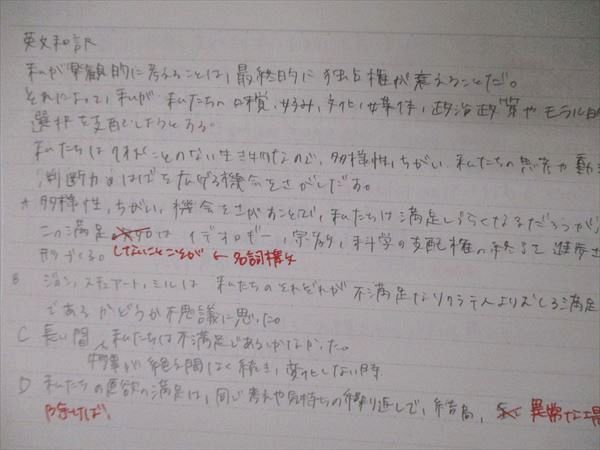 英文和訳
私が楽観的に考えることは、最終的に独占権が衰えることだ。
それによって、私が私たちの 好み、文化、媒体、政治政策やモラル的
選択を支配しようとする。
私たちは のない生き物なので、多様性、ちがい、私たちの思考や
判断力 はばを広げる機会をさがしだす。
A 多様性、ちがい、機会をさがすことで、私たちは満足しづらくなるだろうが、
この満足 しないことこそが ← 名詞構文 はイデオロギー、宗教、科学の支配権の終 て進歩
形づくる。
B ジョン、スチュアート、ミルは、私たちのそれぞれが不満足なソクラテスよりむしろ満足
であるかどうか不思議に思った。
C 長い間、私たちは不満足であいかなかった。
物事が絶え間なく続き、変化しない時
D 私たちの食欲の満足は、同じ考えや気持ちの繰り返しで、結局、 異常な
除けば、